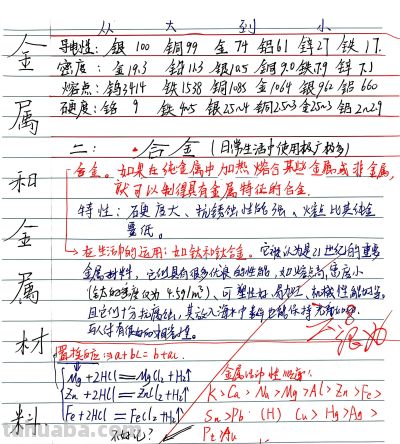 从大到小
金属和金属材料
导电性：银 100 铜99 金74 铝61 锌27 铁17.
密度：金19.3 铅11.3 银10.5 铜9.0 铁7.9 锌7.1
熔点：钨3414 铁1538 铜1083 金1064 银962 铝660
硬度：铬9 铁4~5 银2.5~4 铜2.5~3 金2.5~3 铝2~2.9
二：合金（日常生活中使用极广极多）
合金。如果在纯金属中加热熔合某些金属或非金属，
就可以制得具有金属特征的合金.
特性：硬度大、抗锈蚀性能强、熔点比其纯金
属低。
在生活中的运用：如钛和钛合金。它被认为是21世纪的重要
金属材料，它们具有很多优良的性能，如熔点高、密度小
（钛的密度仅为4.5g/m³）、可塑性好、易加工、机械性能好等.
置换反应：a+bc=b+ac.
Mg+2HCl=MgCl₂+H₂↑
Zn+2HCl=ZnCl₂+H₂↑
Fe+2HCl=FeCl₂+H₂↑
金属活动性顺序：
K>Ca>Na>Mg>Al>Zn>Fe>
Sn>Pb (H) Cu>Hg>Ag>
Pt>Au